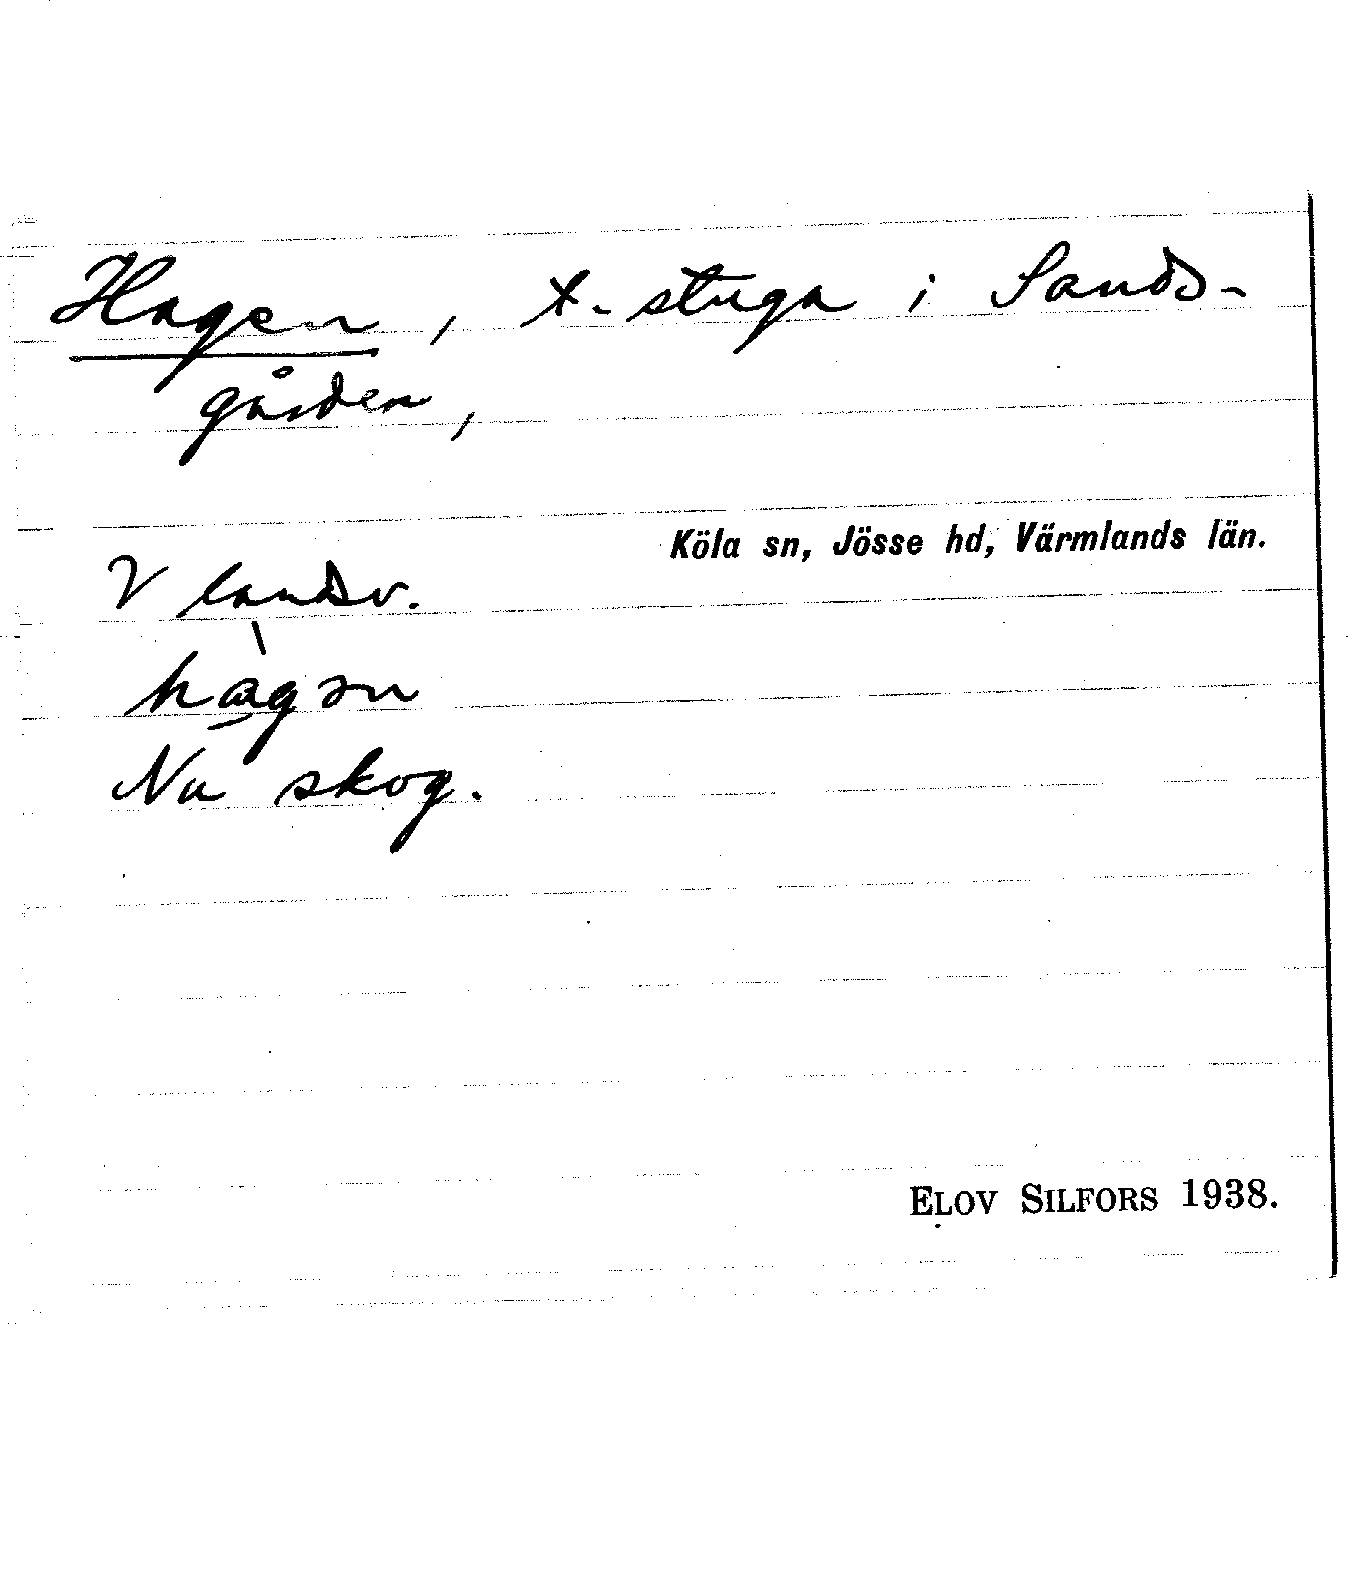 Hagen, t-stuga i Sands-
gården,
Köla sn, Jösse hd, Värmlands län.
V landsv.
hàgən
Nu skog.
ELOV SILFORS 1938.